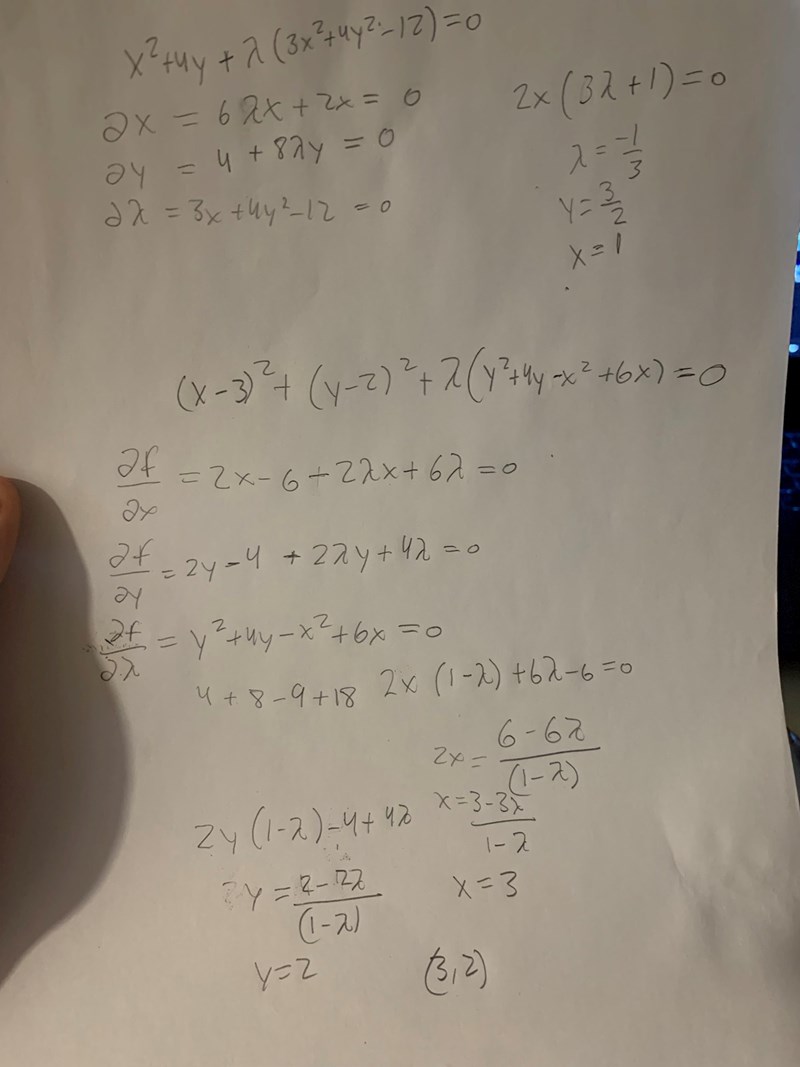 x²+4y + λ(3x²+4y²-12)=0
∂x = 6λx+2x= 0
∂y = 4 + 8λy = 0
∂λ = 3x+4y²-12 =0
2x(3λ+1)=0
λ=-1/3
y=3/2
x=1
(x-3)²+ (y-2)²+λ(y²+4y-x²+6x)=0
∂f/∂x = 2x-6+2λx+6λ=0
∂f/∂y = 2y-4 +2λy+4λ=0
∂f/∂λ = y²+4y-x²+6x=0
4+8-9+18
2x (1-λ)+6λ-6=0
2x= (6-6λ)/(1-λ)
x=(3-3λ)/(1-λ)
x=3
2y(1-λ)-4+4λ
y=(2-2λ)/(1-λ)
y=2
(3,2)